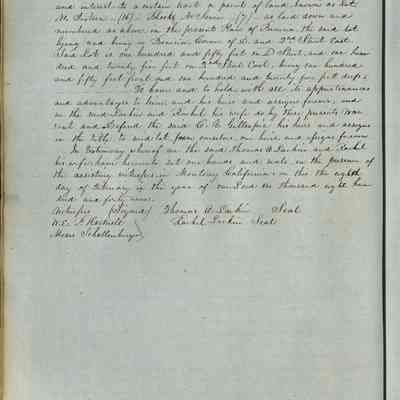 and interest to a certain lot or parcel of land known as Lot
N. Sixteen (16) Block No Seven (7) as laid down and
numbered as above in the present Plan of Benicia the said lot
lying and being in Benicia Corner of D. and 2nd Street East.
Said Lot is one hundred and fifty feet on D Street and one hun
dred and twenty five feet on 2nd Street East, being one hundred
and fifty feet front and one hundred and twenty five feet deep.
To have and to hold with all its appurtenances
and advantages to him and his heirs and assigns forever, and
we the said Larkin and Rachel his wife do by these presents War
rant and Defend the said C. V. Gillespie his heirs and assigns
in the title to said lot from ourselves our heirs and assigns forever
In testimony whereof we the said Thomas O Larkin and Rachel
his wife have hereunto set our hands and seals in the presence of
the assisting witnesses in Monterey California on this the eighth
day of February in the year of our Lord one thousand eight hun
dred and forty nine.
Witnesses (Signed) Thomas O. Larkin Seal
W. E. P. Hartnell Rachel Larkin Seal
Moses Schallenberger